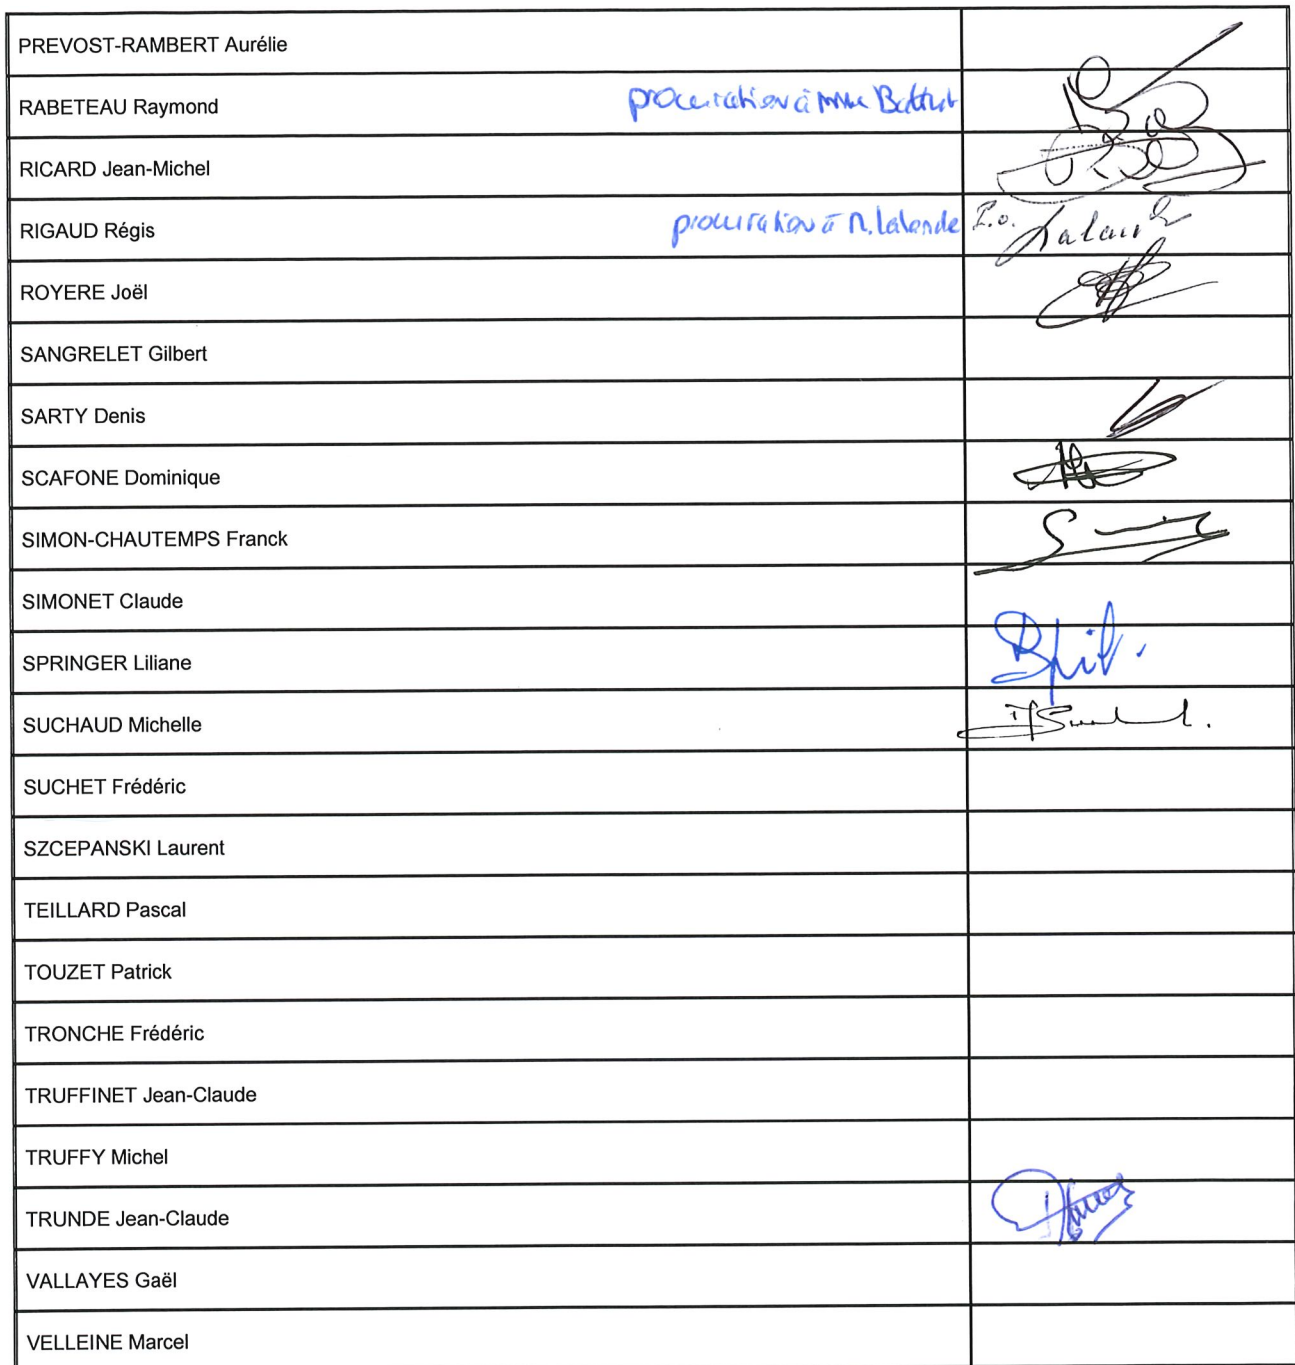 PREVOST-RAMBERT Aurélie
RABETEAU Raymond procuration à Mme Battut
RICARD Jean-Michel
RIGAUD Régis procuration à M. Lalande P.o. Lalande
ROYERE Joël
SANGRELET Gilbert
SARTY Denis
SCAFONE Dominique
SIMON-CHAUTEMPS Franck
SIMONET Claude
SPRINGER Liliane
SUCHAUD Michelle
SUCHET Frédéric
SZCEPANSKI Laurent
TEILLARD Pascal
TOUZET Patrick
TRONCHE Frédéric
TRUFFINET Jean-Claude
TRUFFY Michel
TRUNDE Jean-Claude
VALLAYES Gaël
VELLEINE Marcel